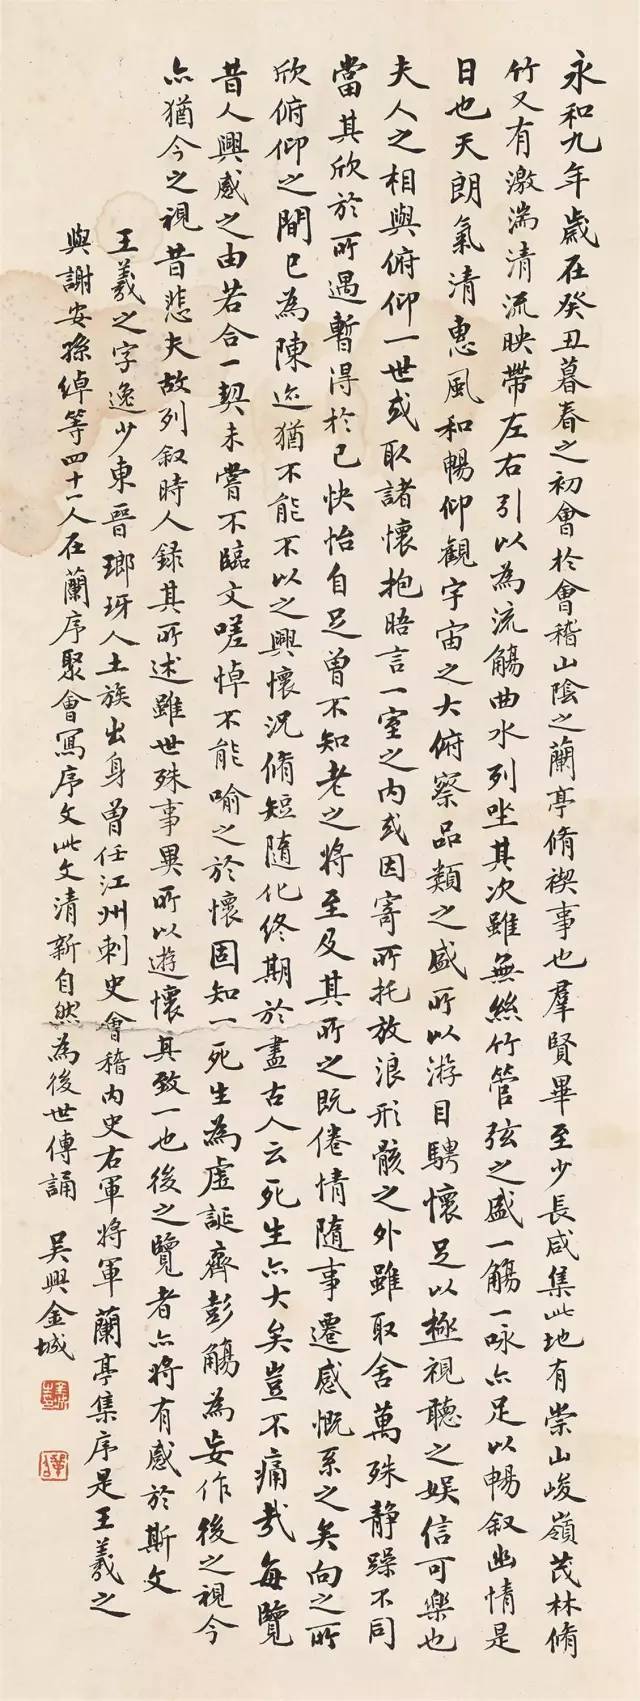 永和九年歲在癸丑暮春之初會於會稽山陰之蘭亭脩禊事也羣賢畢至少長咸集此地有崇山峻嶺茂林脩
竹又有激湍清流映帶左右引以為流觴曲水列坐其次雖無絲竹管弦之盛一觴一詠亦足以暢叙幽情是
日也天朗氣清惠風和暢仰觀宇宙之大俯察品類之盛所以游目騁懷足以極視聽之娛信可樂也
夫人之相與俯仰一世或取諸懷抱晤言一室之內或因寄所托放浪形骸之外雖取舍萬殊靜躁不同
當其欣於所遇暫得於己快怡自足曾不知老之將至及其所之既倦情隨事遷感慨系之矣向之所
欣俯仰之間已為陳迹猶不能不以之興懷況脩短隨化終期於盡古人云死生亦大矣豈不痛哉每覽
昔人興感之由若合一契未嘗不臨文嗟悼不能喻之於懷固知一死生為虛誕齊彭觴為妄作後之視今
亦猶今之視昔悲夫故列叙時人錄其所述雖世殊事異所以遊懷其致一也後之覽者亦將有感於斯文
王羲之字逸少東晉瑯玡人士族出身曾任江州刺史會稽內史右軍將軍蘭亭集序是王羲之
與謝安孫綽等四十一人在蘭序聚會寫序文此文清新自然為後世傳誦
吳興金城